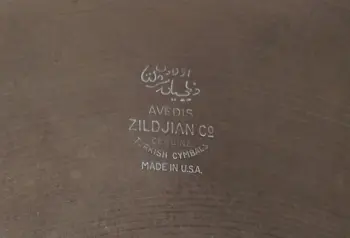 AVEDIS
ZILDJIAN CO
GENUINE
TURKISH CYMBALS
MADE IN U.S.A.